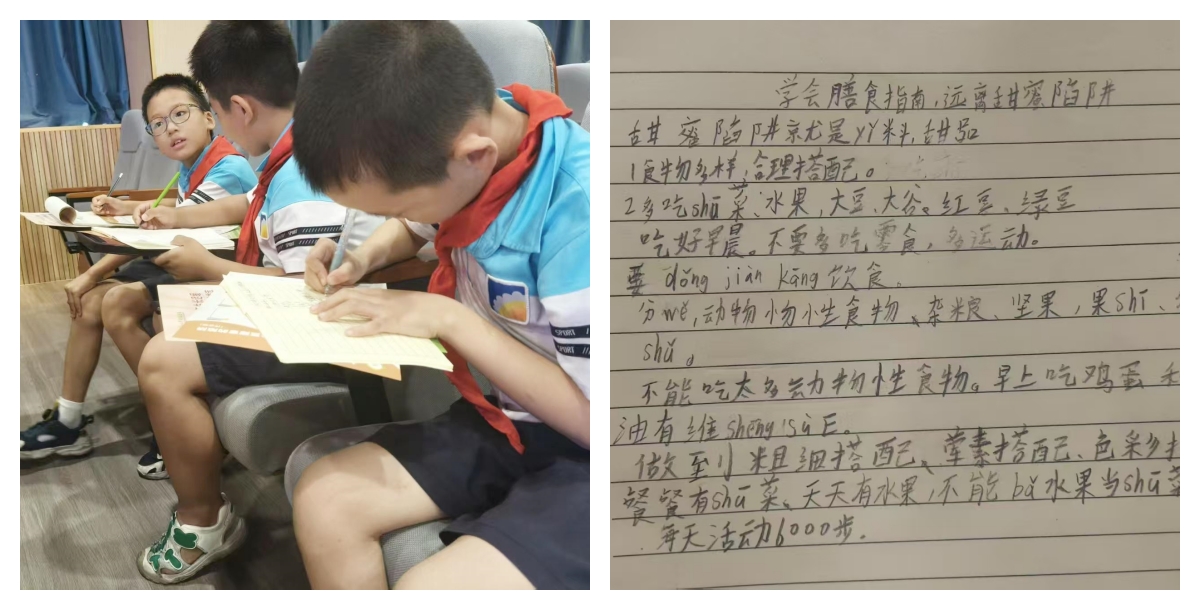 SPORT
SPORT
学会膳食指南,远离甜蜜陷阱
甜蜜陷阱就是yǐ料,甜品
1食物多样,合理搭配。
2多吃shū菜、水果,大豆、大谷。红豆、绿豆
吃好早晨。不要多吃零食,多运动。
要dǒng jiàn kāng饮食。
分wé,动物小物小生食物、杂粮、坚果,果shí、
shǔ。
不能吃太多动物性食物。早上吃鸡蛋
油有维shēng sù E。
做至小粗细搭配、荤素搭配、色彩多
餐餐有shū菜、天天有水果,不能bǎ水果当shū菜
每天活动6000步.